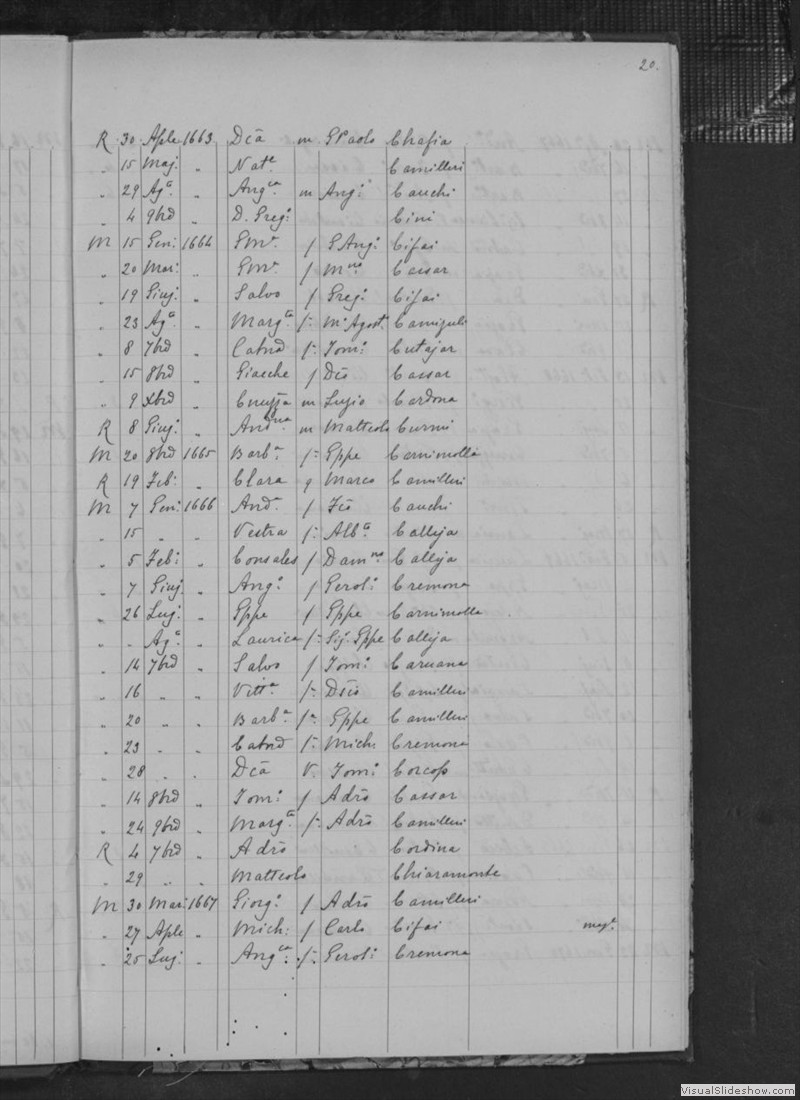 20.
R 30 Aple 1663 Dcã m GPaolo Chafia
" 15 Maj: " Natᵉ Camilleri
" 29 Agᵒ " Angᶜᵃ m Angᵒ Cauchi
" 4 9brẽ " D. Gregᵒ Cini
M 15 Genᵒ 1664 Gmᵒ f GAngᵒ Cifai
" 20 Marᵒ " Gmᵒ f Mⁿᵒ Cassar
" 19 Giugᵒ " Salvo f Gregᵒ Cifai
" 23 Agᵒ " Margᵗᵃ f: Mᵒ Agostᵒ
" 8 7brẽ " Catnã f: Tomᵒ Cutajar
" 15 8brẽ " Giacche f Dcõ Cassar
" 9 xbrẽ " m Lugio Cardona
R 8 Giugᵒ " Andⁿᵃ m Matteolo Curmi
M 20 8brẽ 1665 Barbᵃ f: Gppe Carnimolla
R 19 Feb: " Clara q Marco Camilleri
M 7 Genᵒ 1666 Andᵃ f Fcõ Cauchi
" 15 " " Vestra f: Albᵗᵒ Calleja
" 5 Feb: " Consales f Damⁿᵒ Calleja
" 7 Giug. " Angᵒ f Gerolᵒ Cremona
" 26 Lug: " Gppe f Gppe Carnimolla
" " Agᵒ " Laurica f: Sig. Gppe Calleja
" 14 7brẽ " Salvo f Tomᵒ Caruana
" 16 " " Vittᵃ f: Dcõ Camilleri
" 20 " " Barbᵃ f: Gppe Camilleri
" 23 " " Catnã f: Mich: Cremona
" 28 " " Dcã V. Tomᵒ Corcop
" 14 8brẽ " Tomᵒ f Adrõ Cassar
" 24 9brẽ " Margᵗᵃ f: Adrõ Camilleri
R 4 7brẽ " Adrõ Cordina
" 29 " " Matteolo Chiaramonte
M 30 Marᵒ 1667 Giorgᵒ f Adrõ Camilleri
" 27 Aple " Mich: f Carlo Cifai
" 25 Lug: " Angᶜᵃ f: Gerolᵒ Cremona
VisualSlideshow.com